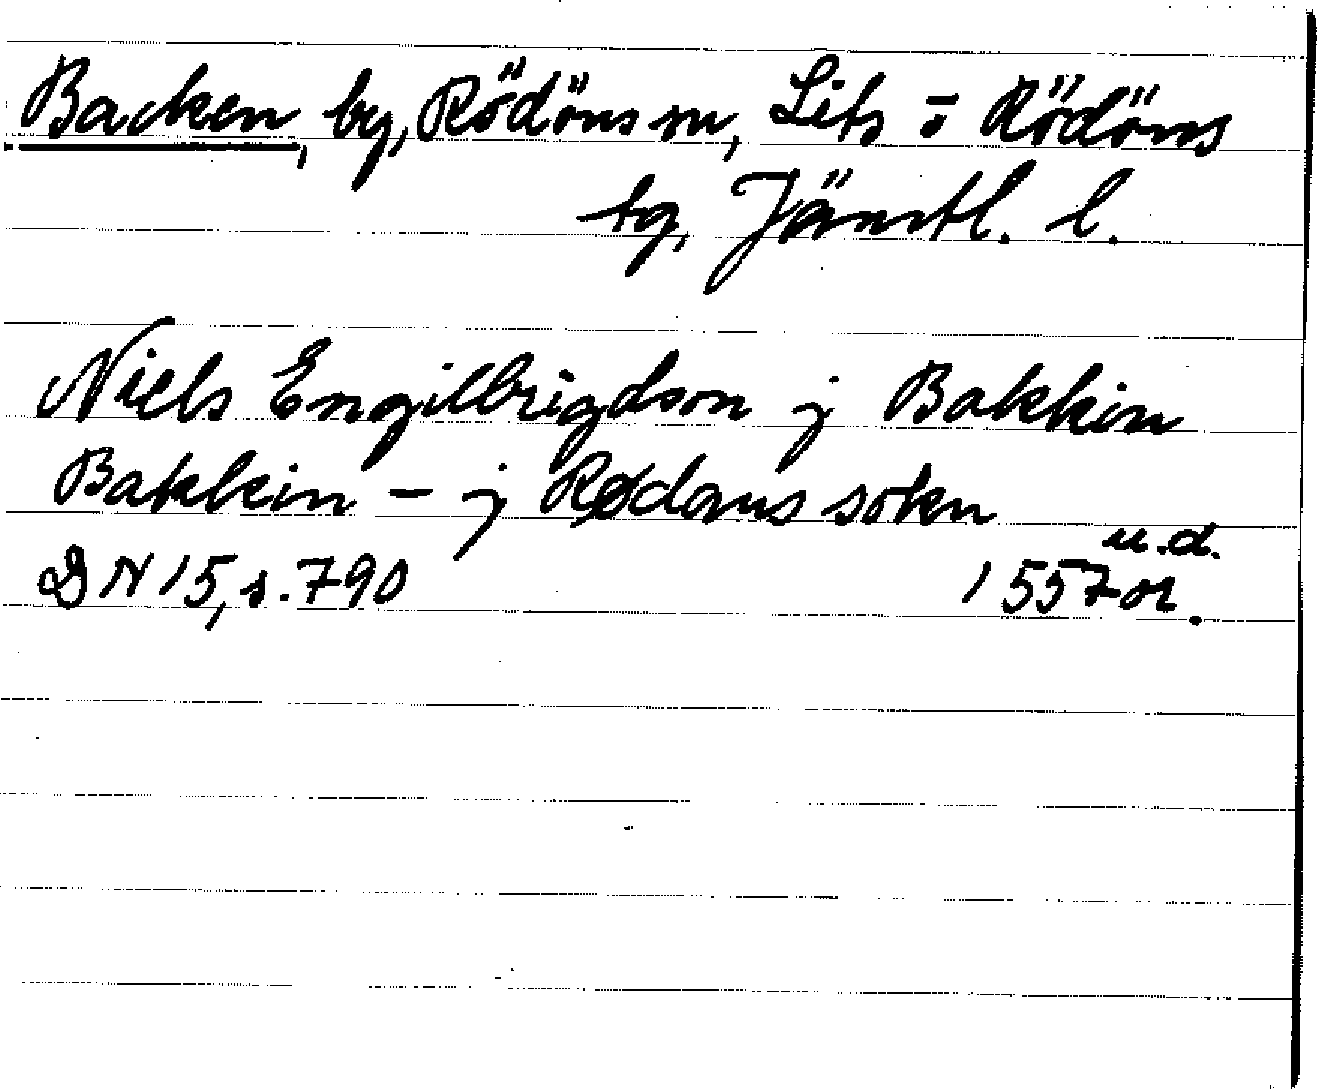 Backen, by, Rödöns sn, Lits o Rödöns
tg, Jämtl. l.
Niels Engilbrigdson j Bakkin
Bakkin - j Rødøns sokn
u.d.
DN 15, s. 790 1557 or.